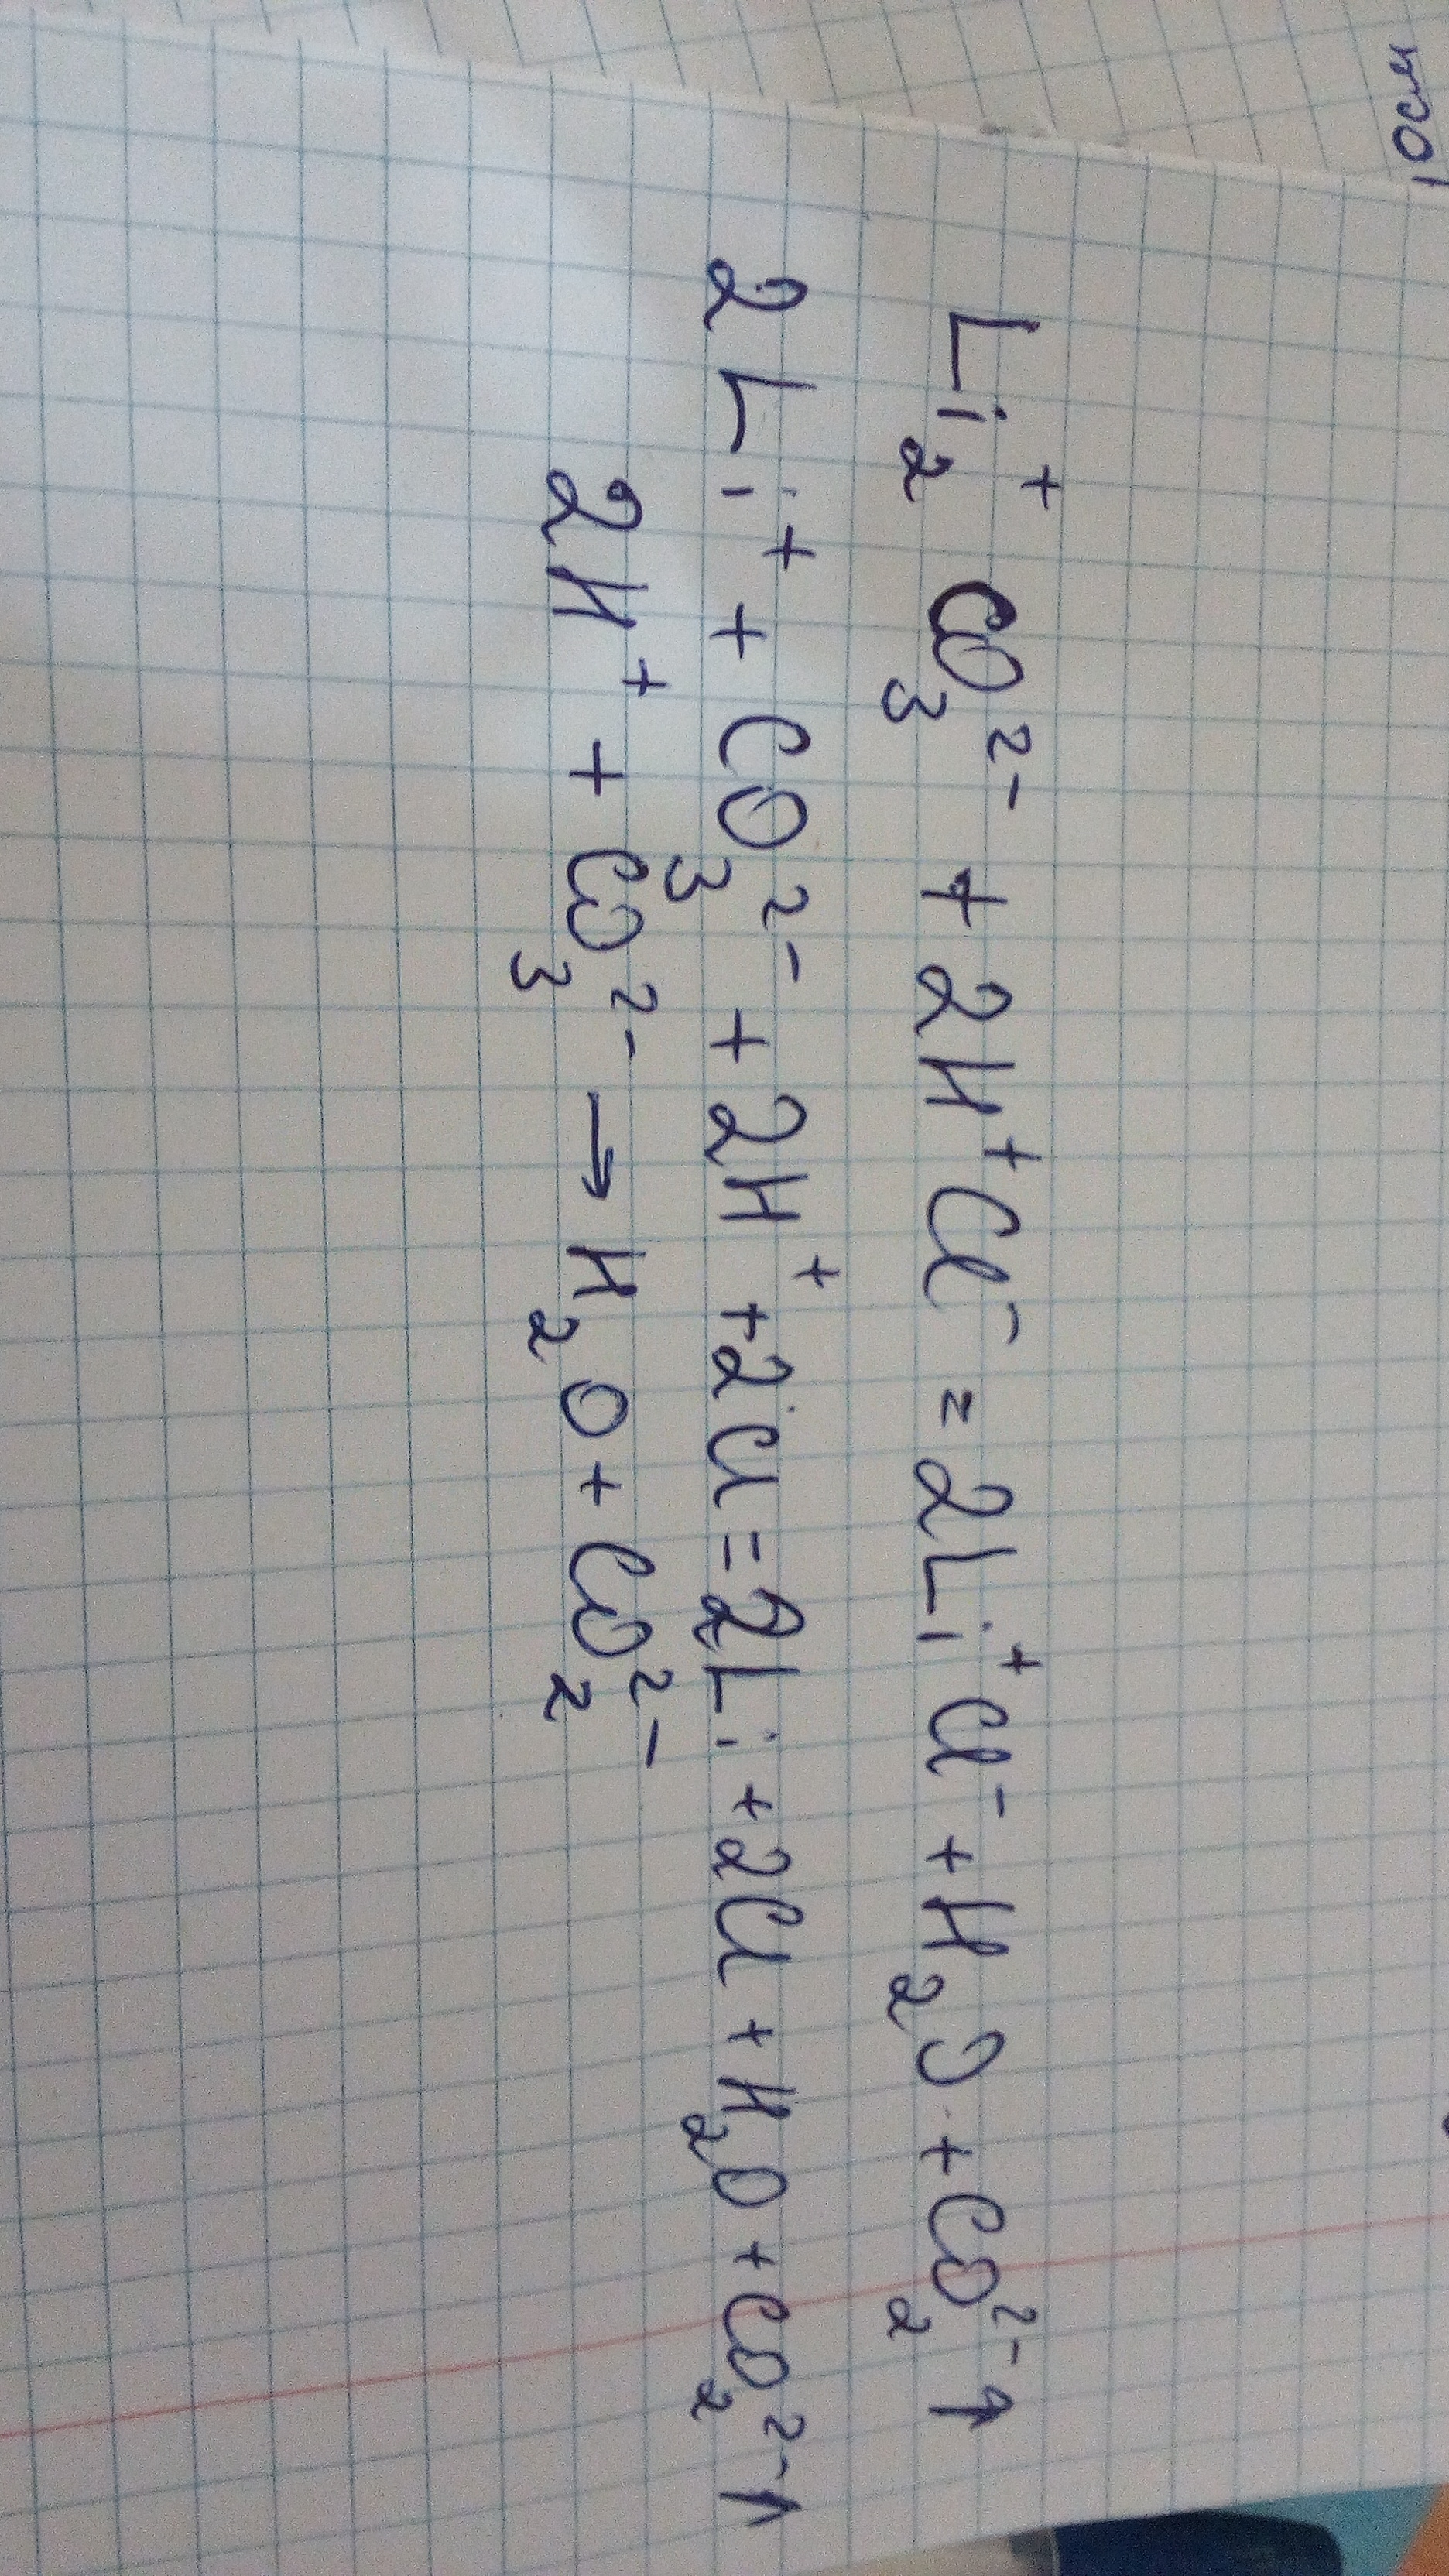 Li₂⁺ CO₃²⁻ + 2H⁺Cl⁻ = 2Li⁺Cl⁻ + H₂O + CO₂²⁻↑
2Li⁺ + CO₃²⁻ + 2H⁺ + 2Cl = 2Li + 2Cl + H₂O + CO₂²⁻↑
2H⁺ + CO₃²⁻ → H₂O + CO₂²⁻